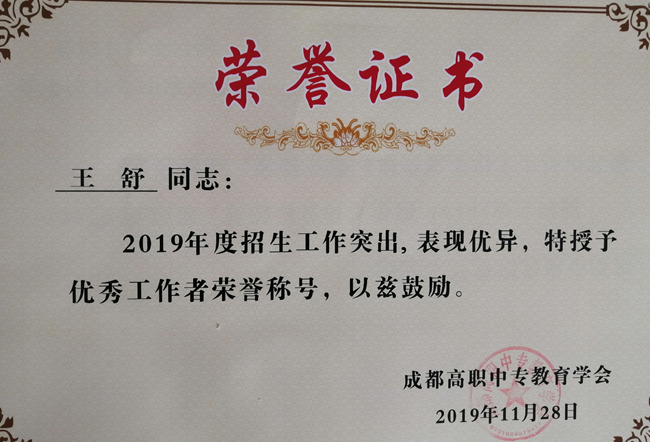 荣誉证书
王 舒 同志：
2019年度招生工作突出, 表现优异，特授予
优秀工作者荣誉称号，以兹鼓励。
成都高职中专教育学会
2019年11月28日